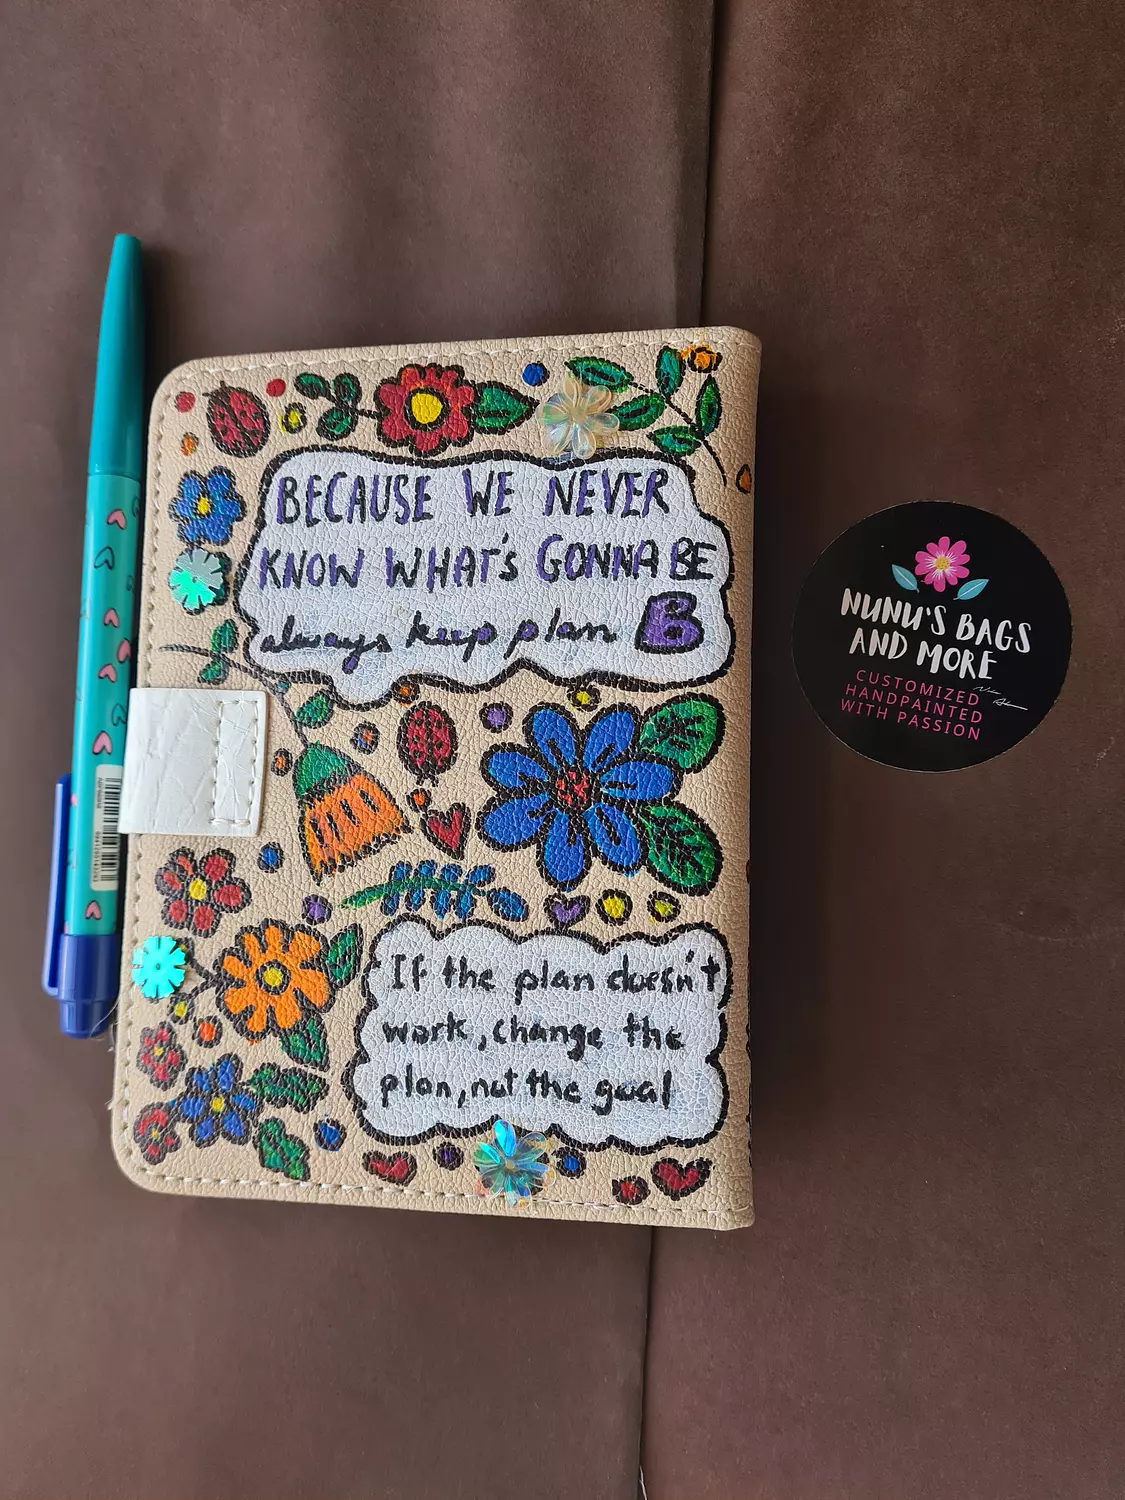 BECAUSE WE NEVER
KNOW WHAT'S GONNA BE
always keep plan B
If the plan doesn't
work, change the
plan, not the goal
NUNU'S BAGS
AND MORE
CUSTOMIZED
HANDPAINTED
WITH PASSION